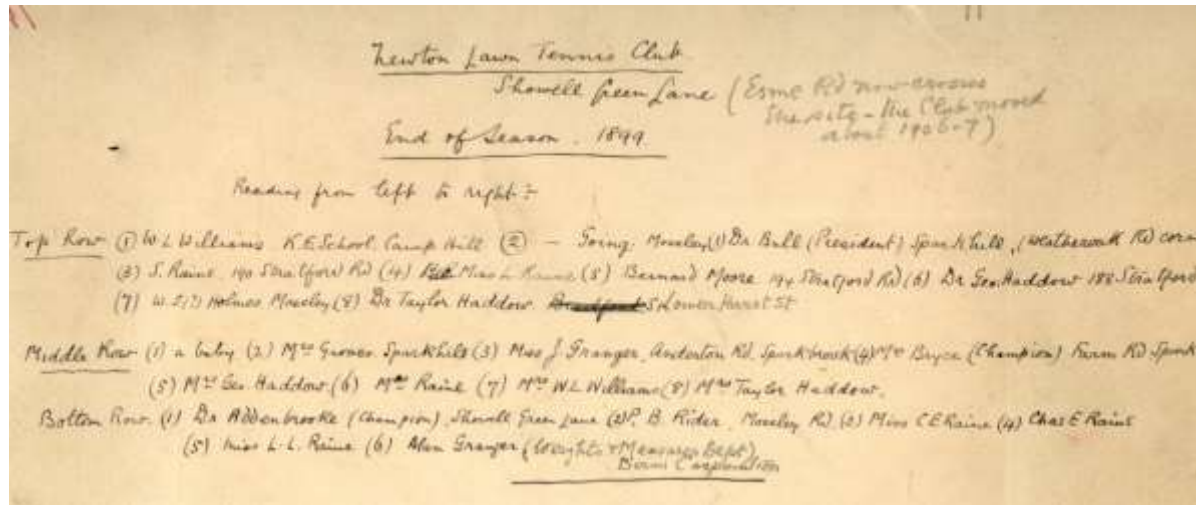 Newton Lawn Tennis Club
Showell Green Lane (Esme Rd now crosses
the site - the Club moved
about 1906-7)
End of Season. 1899.
Reading from left to right:-
Top Row (1) W L Williams K.E School. Camp Hill (2) — Going. Moseley (1) Dr Bull (President) Sparkhill, (Weatheroak Rd corn
(3) S. Raine 190 Stratford Rd (4) Miss L Raine (5) Bernard Moore 194 Stratford Rd (6) Dr Geo. Haddow 188 Stratford
(7) W. S(?) Holmes Moseley (8) Dr Taylor Haddow. Lower Hurst St
Middle Row (1) a baby (2) Mrs Groves. Sparkhill (3) Miss J Granger, Anderton Rd. Sparkbrook (4) Mrs Bryce (Champion) Farm Rd. Spark
(5) Mrs Geo. Haddow. (6) Mrs Raine (7) Mrs W L Williams (8) Mrs Taylor Haddow.
Bottom Row. (1) Dr Addenbrooke (Champion), Showell Green Lane (2) P. B. Rider, Moseley Rd. (3) Miss C E Raine (4) Chas E Raine
(5) Miss L. L. Raine (6) Alan Granger (Weights & Measures Dept)
Birm Corporation